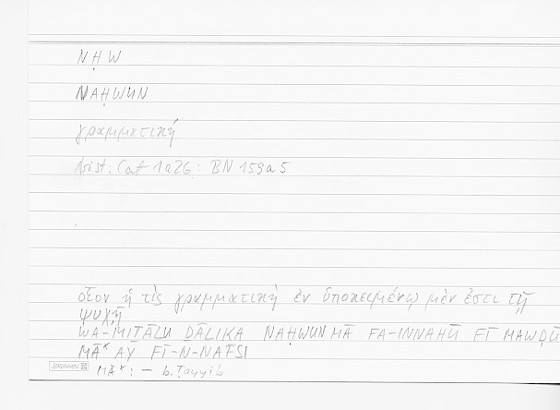 NḤW
NAḤWUN
γραμματική
Arist. Cat 1a26: BN 159a5
οἷον ἡ τὶς γραμματικὴ ἐν ὑποκειμένῳ μέν ἐστι τῇ
ψυχῇ
WA-MIṮĀLU ḎĀLIKA NAḤWUN MĀ FA-INNAHŪ FĪ MAWḌŪ
MĀ* AY FĪ-N-NAFSI
MĀ*: – b. Ṭayyib